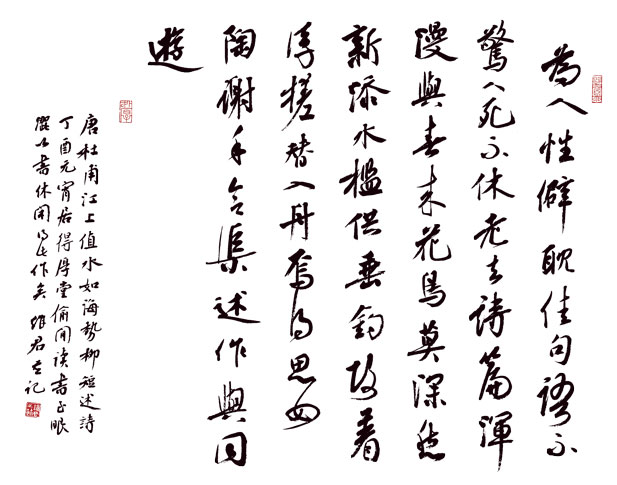 為人性僻耽佳句語不
驚人死不休老去詩篇渾
漫與春來花鳥莫深愁
新添水檻供垂釣故着
浮槎替入舟焉得思如
陶謝手令渠述作與同
遊
唐杜甫江上值水如海勢聊短述詩
丁酉元宵居得厚堂偷閒讀書正眼
書休閒得此作矣君記